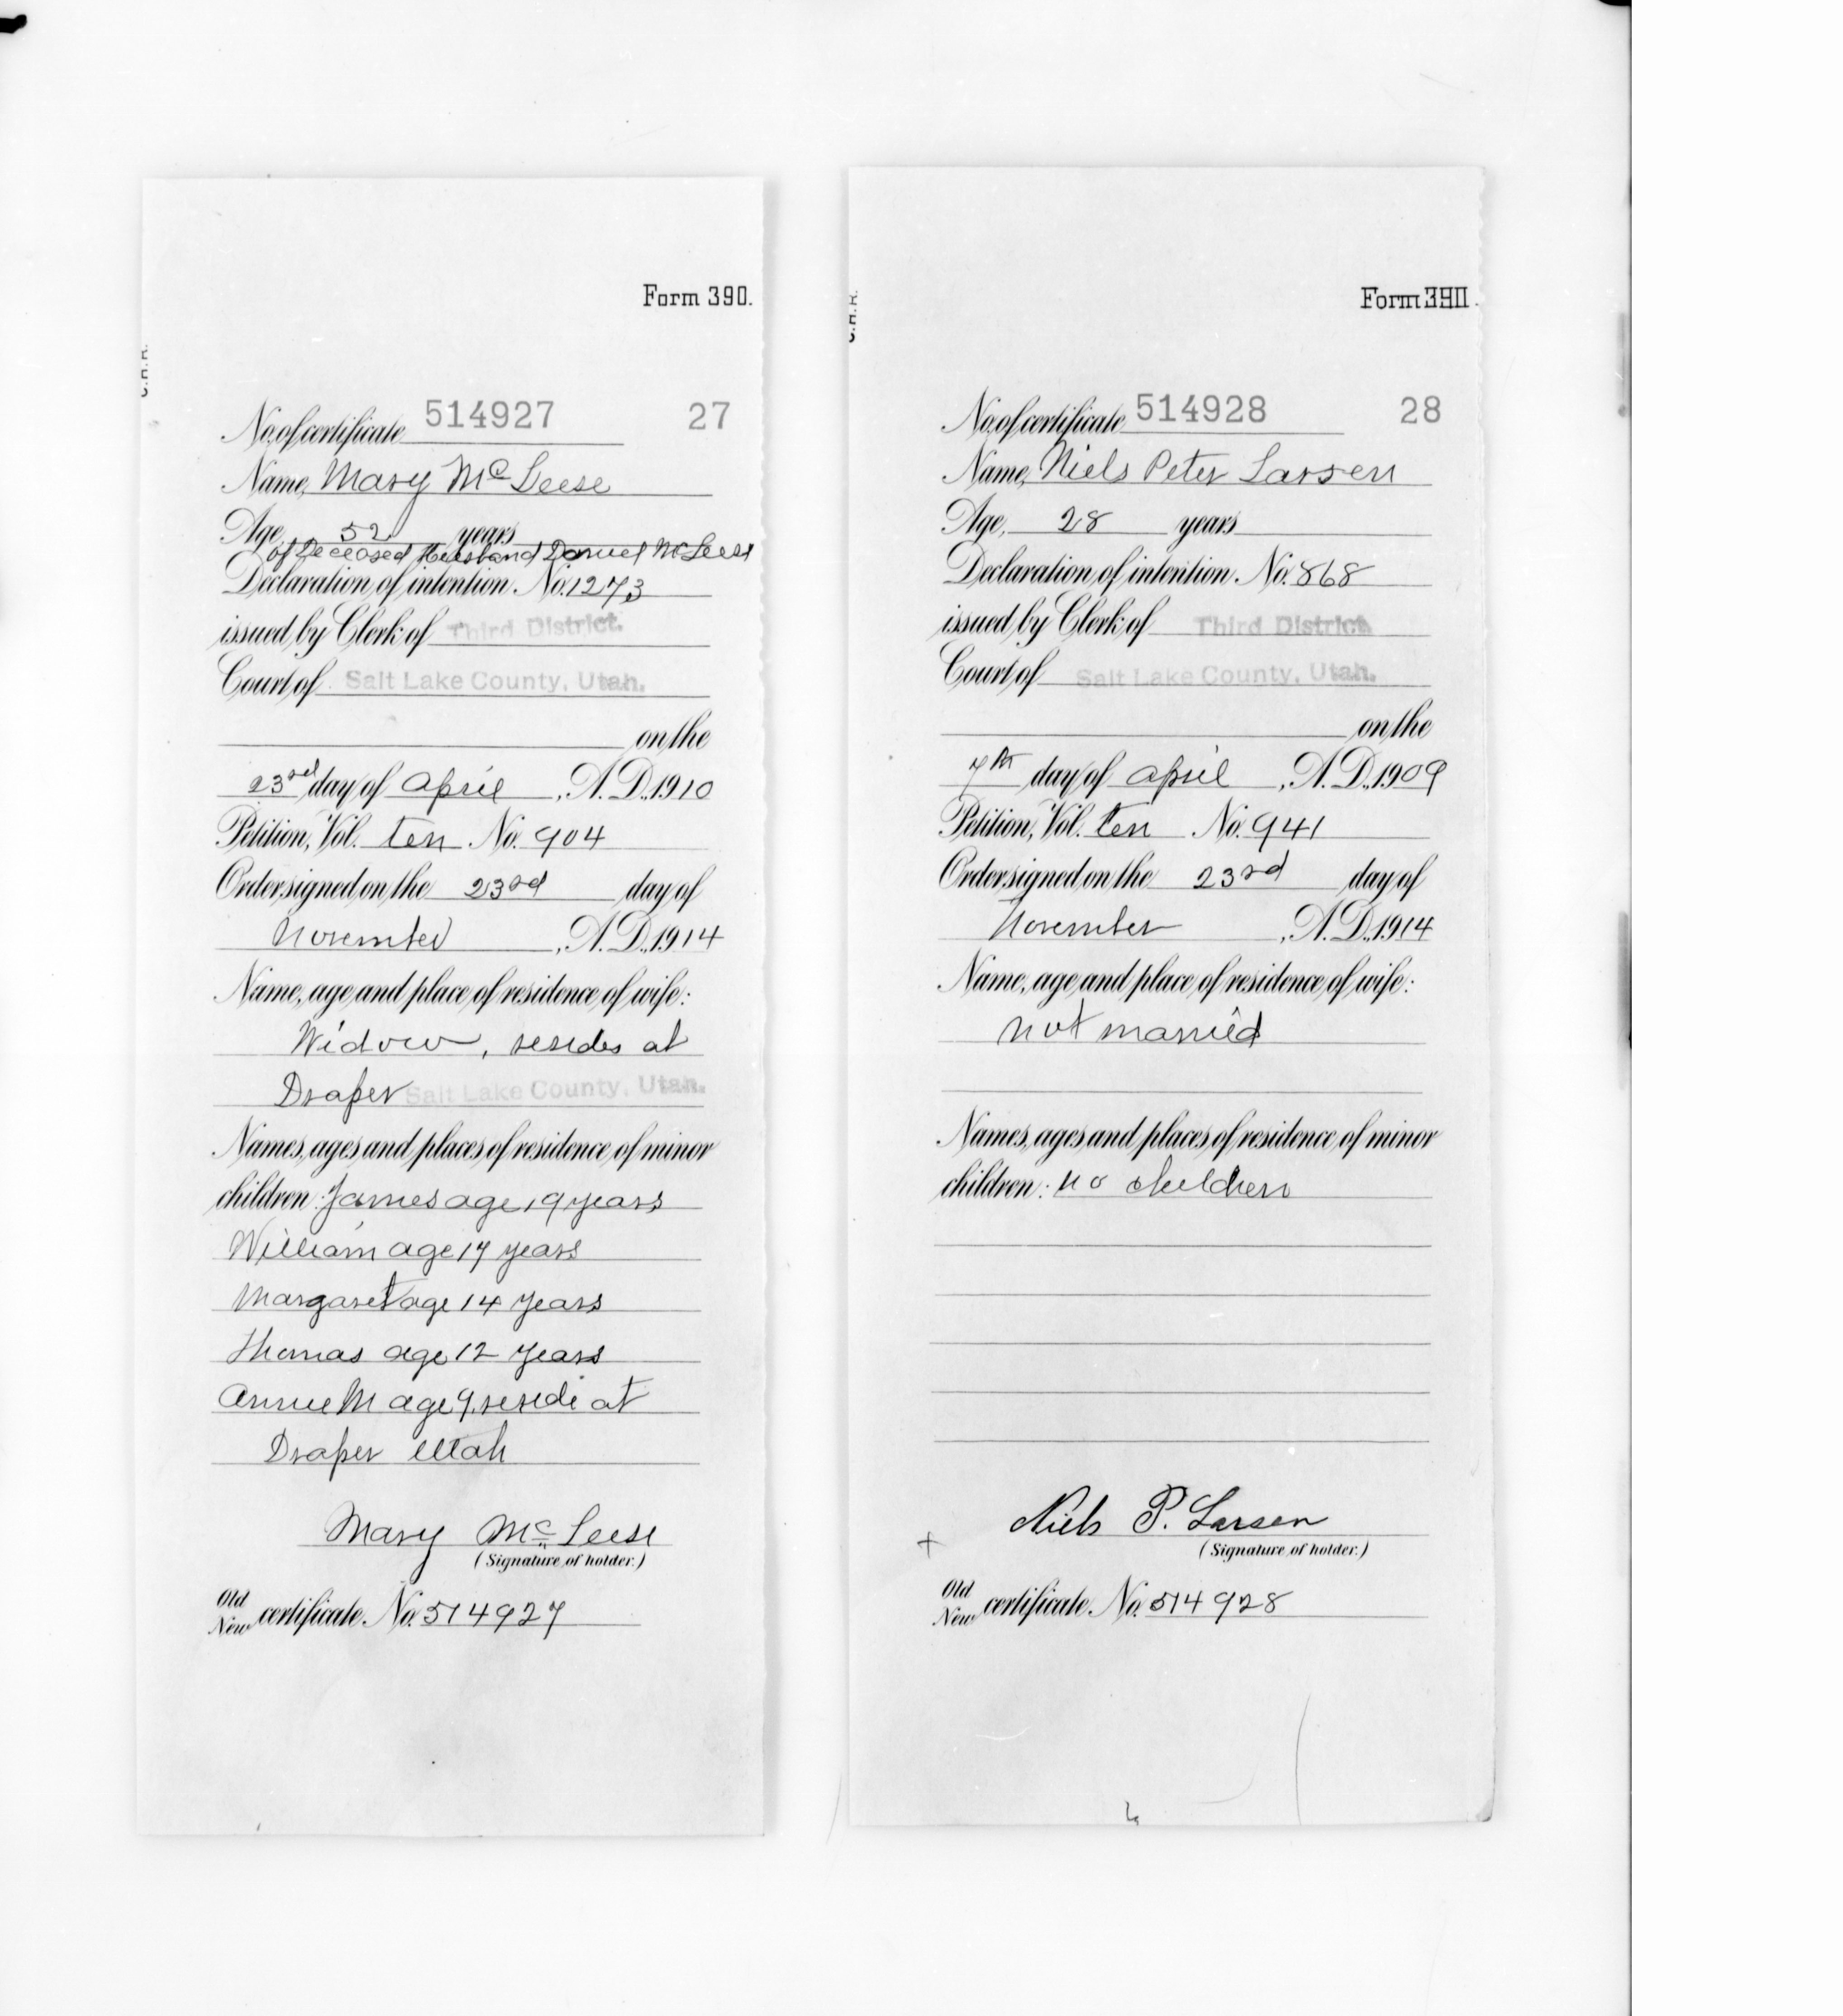 Form 390.
C.H.R.
No. of certificate 514927 27
Name, Mary McLeese
Age, 52 years
of Deceased Husband Daniel McLeese
Declaration of intention No. 1273
issued by Clerk of Third District.
Court of Salt Lake County, Utah.
on the
23rd day of April, A.D. 1910
Petition, Vol. ten No. 904
Order signed on the 23rd day of
November, A.D. 1914
Name, age and place of residence of wife:
Widow, resides at
Draper Salt Lake County, Utah.
Names, ages and places of residence of minor
children: James age 19 years
William age 17 years
Margaret age 14 years
Thomas age 12 years
Annie M age 9. reside at
Draper Utah
Mary McLeese
(Signature of holder.)
Old
New certificate No. 514927
Form 390.
C.H.R.
No. of certificate 514928 28
Name, Niels Peter Larsen
Age, 28 years
Declaration of intention No. 868
issued by Clerk of Third District
Court of Salt Lake County, Utah.
on the
7th day of April, A.D. 1909
Petition, Vol. ten No. 941
Order signed on the 23rd day of
November, A.D. 1914
Name, age and place of residence of wife:
not married
Names, ages and places of residence of minor
children: no children
Niels P. Larsen
(Signature of holder.)
Old
New certificate No. 514928